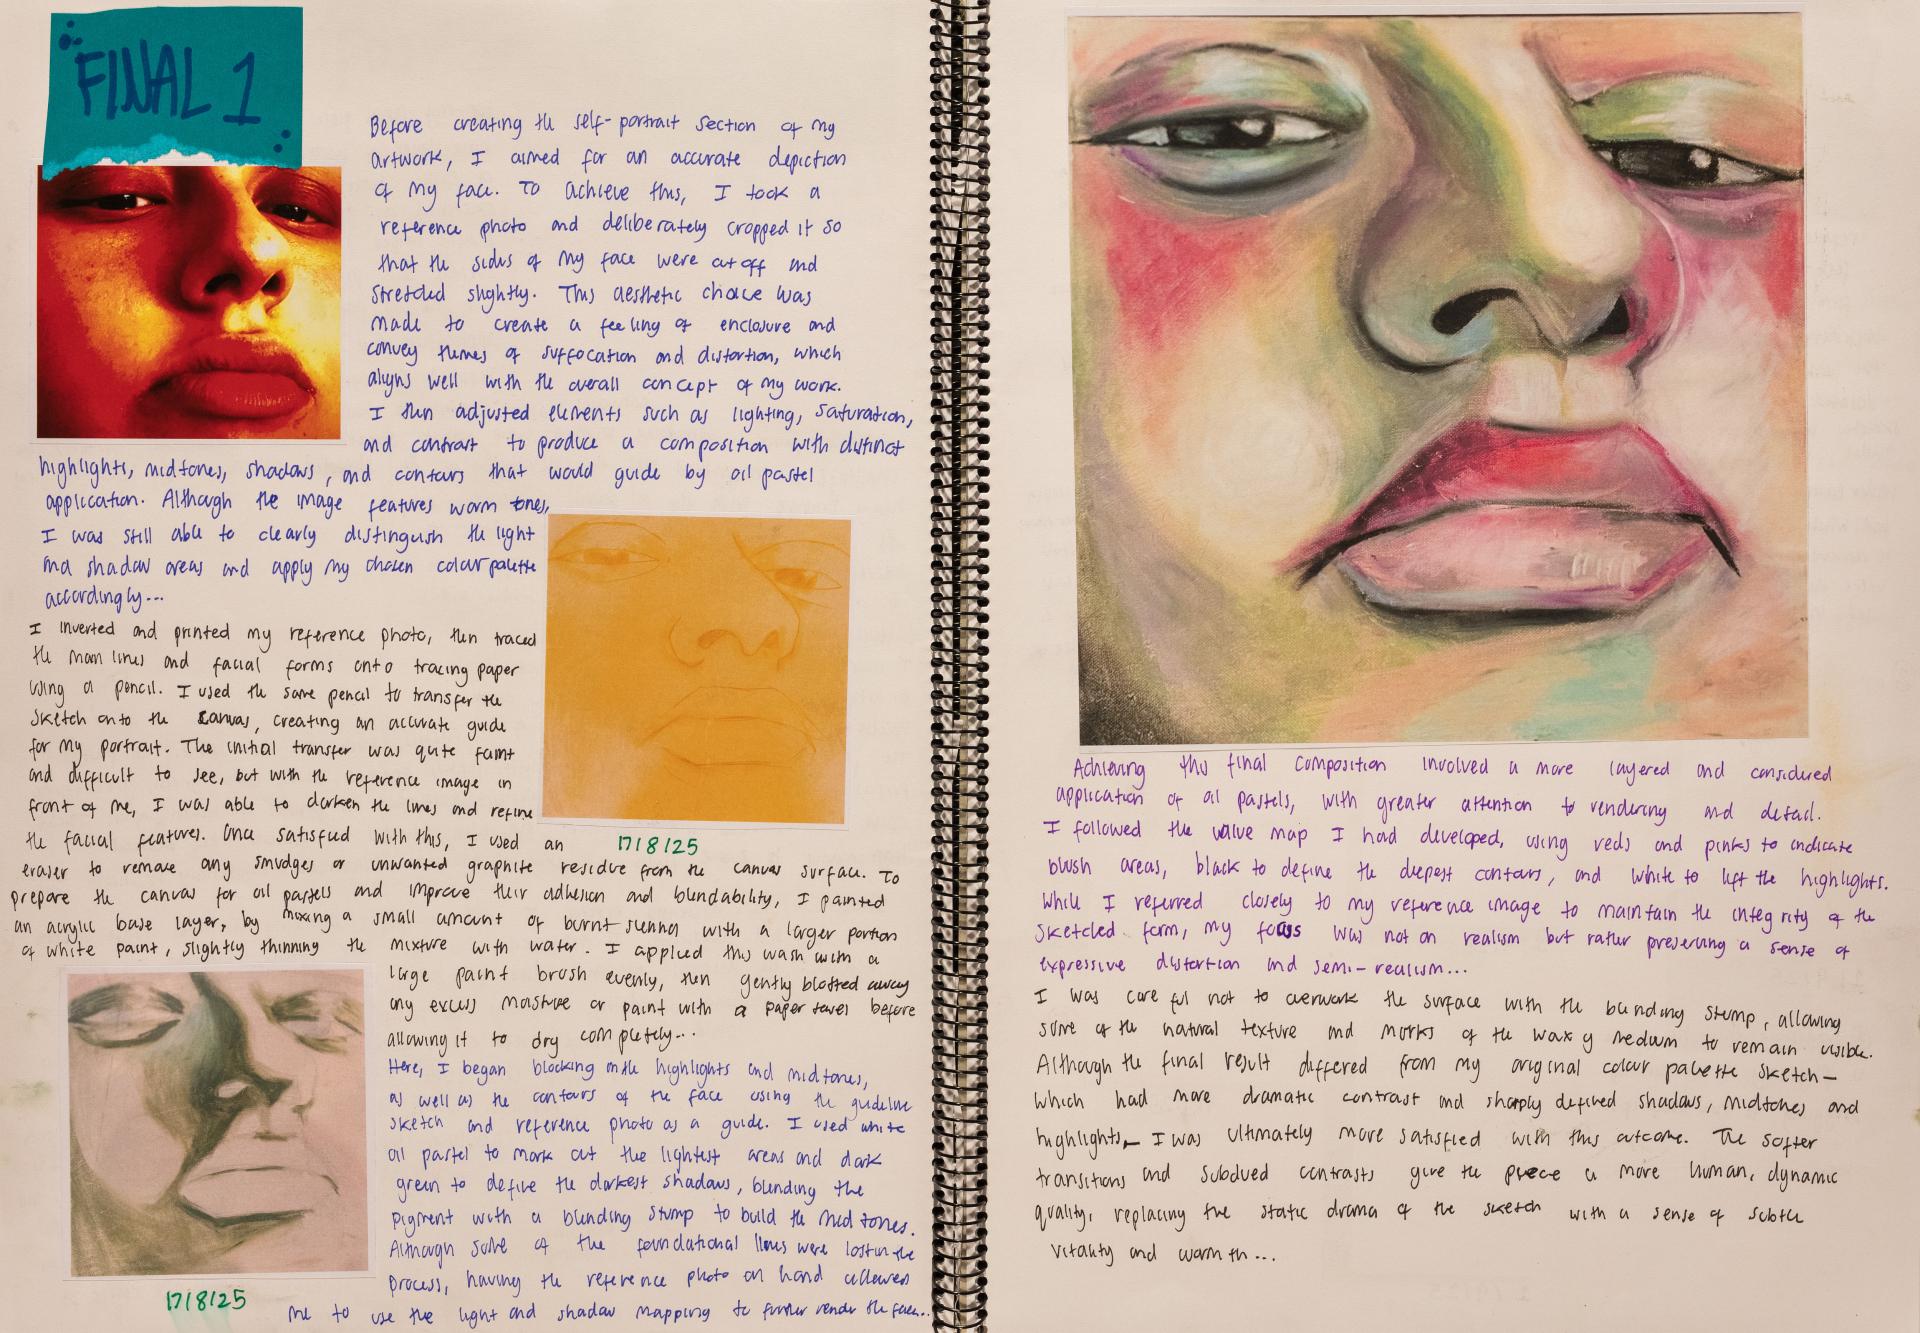 FINAL 1
Before creating the self-portrait section of my
artwork, I aimed for an accurate depiction
of my face. To achieve this, I took a
reference photo and deliberately cropped it so
that the sides of my face were cut off and
stretched slightly. This aesthetic choice was
made to create a feeling of enclosure and
convey themes of suffocation and distortion, which
aligns well with the overall concept of my work.
I then adjusted elements such as lighting, saturation,
and contrast to produce a composition with distinct
highlights, midtones, shadows, and contours that would guide by oil pastel
application. Although the image features warm tones,
I was still able to clearly distinguish the light
and shadow areas and apply my chosen colour palette
accordingly...
I inverted and printed my reference photo, then traced
the main lines and facial forms onto tracing paper
using a pencil. I used the same pencil to transfer the
sketch onto the canvas, creating an accurate guide
for my portrait. The initial transfer was quite faint
and difficult to see, but with the reference image in
front of me, I was able to darken the lines and refine
the facial features. Once satisfied with this, I used an
eraser to remove any smudges or unwanted graphite residue from the canvas surface. To
prepare the canvas for oil pastels and improve their adhesion and blendability, I painted
an acrylic base layer, by mixing a small amount of burnt sienna with a larger portion
of white paint, slightly thinning the mixture with water. I applied this wash with a
large paint brush evenly, then gently blotted away
any excess moisture or paint with a paper towel before
allowing it to dry completely...
17/8/25
Here, I began blocking in the highlights and midtones,
as well as the contours of the face using the guideline
sketch and reference photo as a guide. I used white
oil pastel to mark out the lightest areas and dark
green to define the darkest shadows, blending the
pigment with a blending stump to build the mid tones.
Although some of the foundational lines were lost in the
process, having the reference photo on hand allowed
me to use the light and shadow mapping to further render the face...
17/8/25
Achieving this final composition involved a more layered and considered
application of oil pastels, with greater attention to rendering and detail.
I followed the value map I had developed, using reds and pinks to indicate
blush areas, black to define the deepest contours, and white to lift the highlights.
While I referred closely to my reference image to maintain the integrity of the
sketched form, my focus was not on realism but rather preserving a sense of
expressive distortion and semi-realism...
I was careful not to overwork the surface with the blending stump, allowing
some of the natural texture and marks of the waxy medium to remain visible.
Although the final result differed from my original colour palette sketch—
which had more dramatic contrast and sharply defined shadows, midtones and
highlights— I was ultimately more satisfied with this outcome. The softer
transitions and subdued contrasts give the piece a more human, dynamic
quality, replacing the static drama of the sketch with a sense of subtle
vitality and warmth...